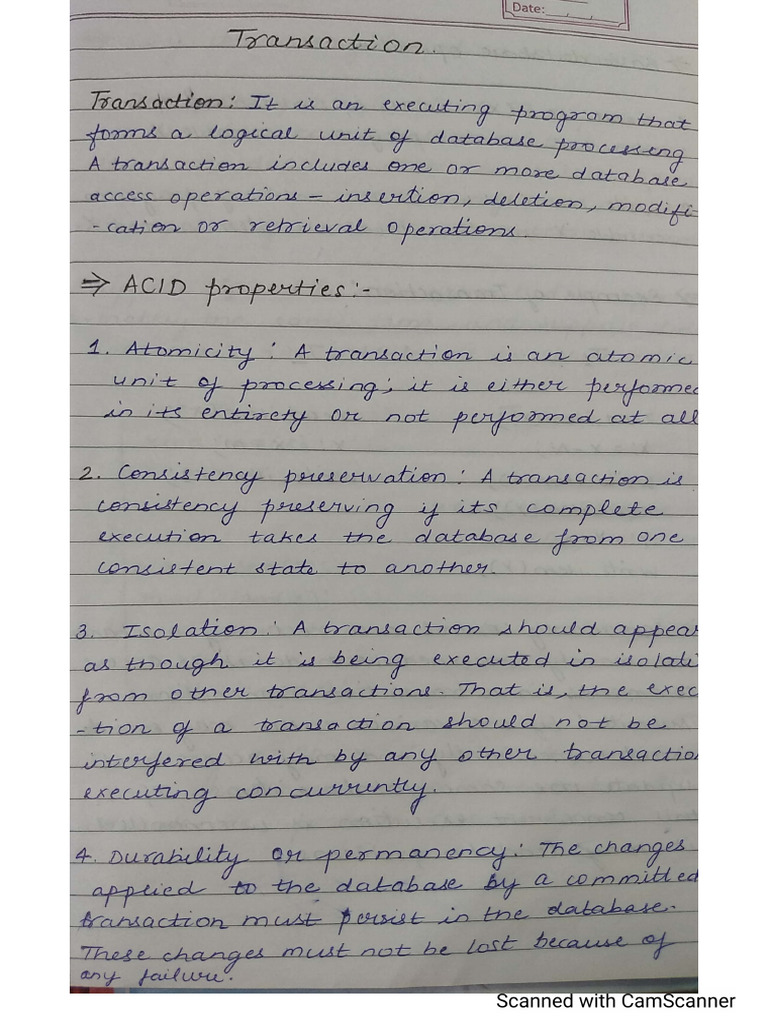 Date:
Transaction.
Transaction: It is an executing program that
forms a logical unit of database processing
A transaction includes one or more database
access operations – insertion, deletion, modifi
-cation or retrieval operations.
⇒ ACID properties:-
1. Atomicity: A transaction is an atomic
unit of processing; it is either performed
in its entirety or not performed at all
2. Consistency preservation: A transaction is
consistency preserving if its complete
execution takes the database from one
consistent state to another.
3. Isolation: A transaction should appear
as though it is being executed in isolati
from other transactions. That is, the exec
-tion of a transaction should not be
interfered with by any other transactio
executing concurrently.
4. Durability or permanency: The changes
applied to the database by a committed
transaction must persist in the database.
These changes must not be lost because of
any failure.
Scanned with CamScanner